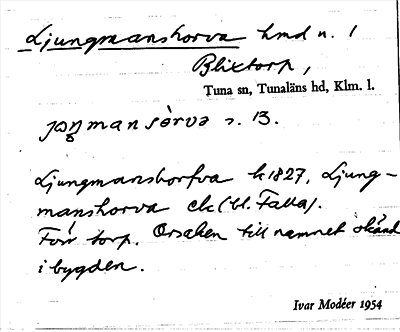 Ljungmanshorva hmd n. 1
Blixtorp,
Tuna sn, Tunaläns hd, Klm. l.
s. B.
Ljungmanshorfva k 1827, Ljung-
manshorva ek (bl. Falla).
Förr torp. Orsaken till namnet okänd
i bygden.
Ivar Modéer 1954